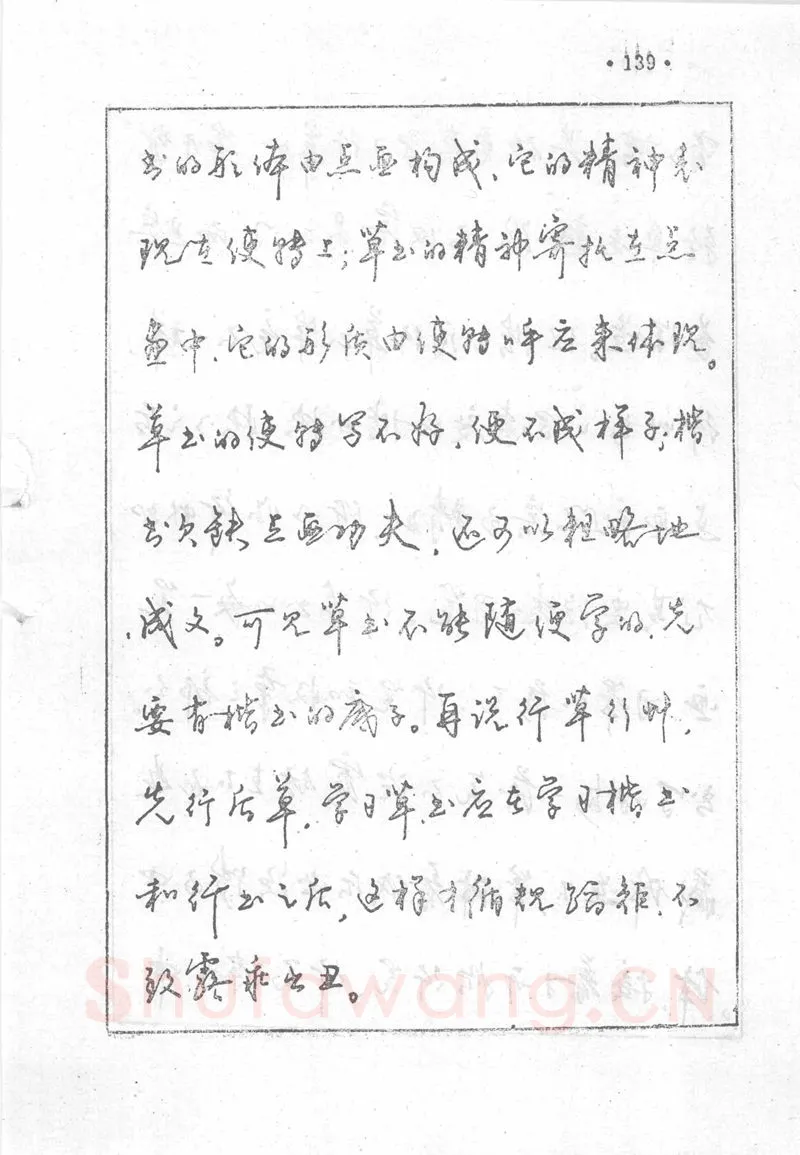 ·139·
书的形体由点画构成，它的精神表
现在使转上；草书的精神寄托在点
画中，它的形质由使转呼应来体现。
草书的使转写不好，便不成样子；楷
书欠缺点画功夫，还可以粗略地
成文。可见草书不能随便学的，先
要有楷书的底子。再说行草行草，
先行后草，学习草书应在学习楷书
和行书之后，这样才循规蹈矩，不
致露乖出丑。
Shufawang.CN